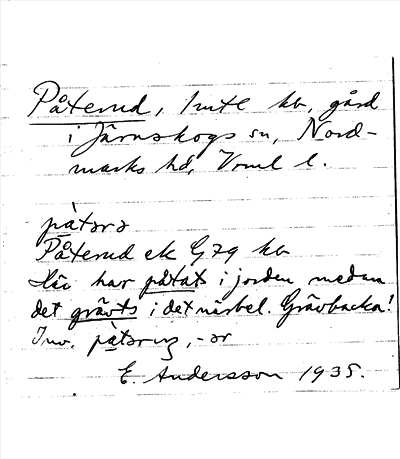 Påterud, 1 mtl kb, gård
i Järnskogs sn, Nord-
marks hd, Vrml l.
pàtərə
Påterud ek G79 kb
Här har påtats i jorden medan
det grävts i det närbel. Grävbacka!
Inv. pàtəriŋ, -ər
E. Andersson 1935.